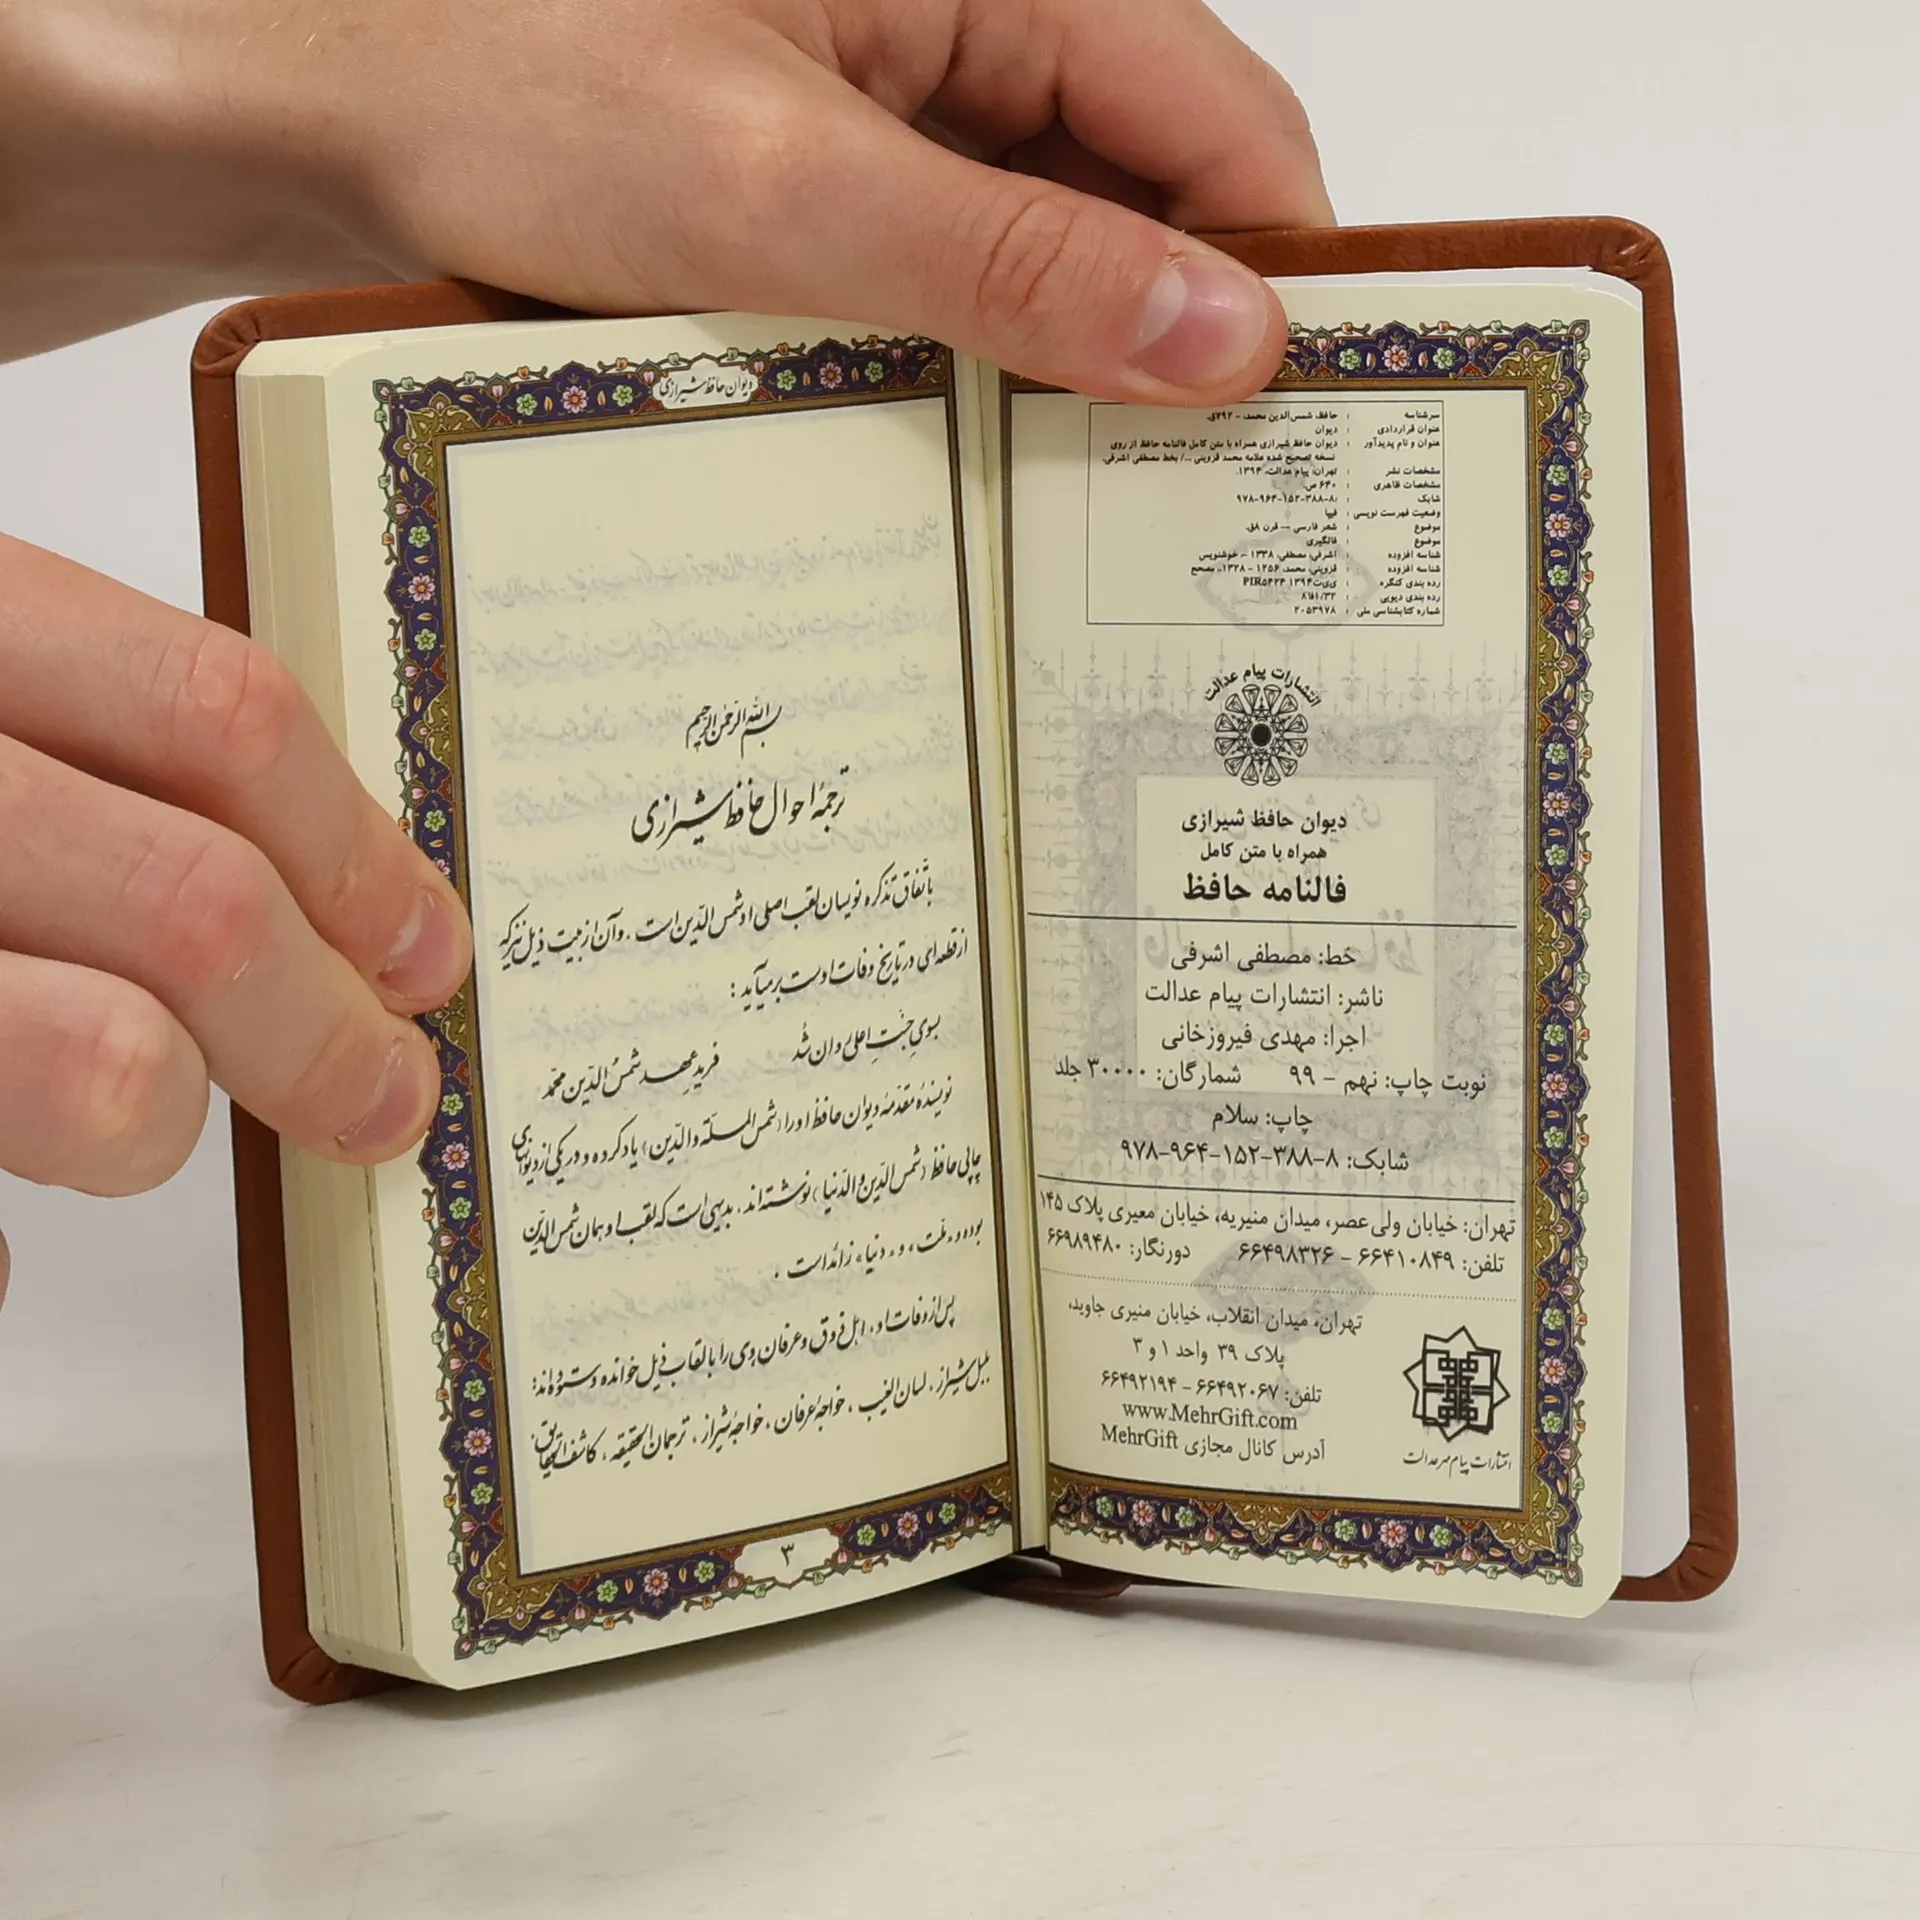 سرشناسه : حافظ، شمس‌الدین محمد، - ۷۹۲ق.
عنوان قراردادی : دیوان
عنوان و نام پدیدآور : دیوان حافظ شیرازی همراه با متن کامل فالنامه حافظ از روی
نسخه تصحیح شده علامه محمد قزوینی .../ بخط مصطفی اشرفی.
مشخصات نشر : تهران: پیام عدالت، ۱۳۹۴.
مشخصات ظاهری : ۶۴۰ ص.
شابک : ۹۷۸-۹۶۴-۱۵۲-۳۸۸-۸
وضعیت فهرست نویسی : فیپا
موضوع : شعر فارسی -- قرن ۸ق.
موضوع : فالگیری
شناسه افزوده : اشرفی، مصطفی، ۱۳۳۸ - خوشنویس
شناسه افزوده : قزوینی، محمد، ۱۲۵۶ - ۱۳۲۸، مصحح
رده بندی کنگره : PIR۵۴۲۴
رده بندی دیویی : ۸فا۱/۳۲
شماره کتابشناسی ملی : ۲۰۵۳۹۷۸
انتشارات پیام عدالت
دیوان حافظ شیرازی
همراه با متن کامل
فالنامه حافظ
خط: مصطفی اشرفی
ناشر: انتشارات پیام عدالت
اجرا: مهدی فیروزخانی
نوبت چاپ: نهم - ۹۹ شمارگان: ۳۰۰۰۰ جلد
چاپ: سلام
شابک: ۸-۳۸۸-۱۵۲-۹۶۴-۹۷۸
تهران: خیابان ولی‌عصر، میدان منیریه، خیابان معیری پلاک ۱۴۵
تلفن: ۶۶۴۱۰۸۴۹ - ۶۶۴۹۸۳۲۶ دورنگار: ۶۶۹۸۹۴۸۰
تهران، میدان انقلاب، خیابان منیری جاوید،
پلاک ۳۹ واحد ۱ و ۳
تلفن: ۶۶۴۹۲۰۶۷ - ۶۶۴۹۲۱۹۴
www.MehrGift.com
آدرس کانال مجازی MehrGift
انتشارات پیام مهر عدالت
دیوان حافظ شیرازی
بسم الله الرحمن الرحیم
ترجمهٔ احوال حافظ شیرازی
باتّفاق تذکره نویسان لقب اصلی او شمس الدّین است. و آن از بیت ذیل نیز که
از قطعه‌ای در تاریخ وفات اوست برمیآید:
بسوی جنّتِ اعلی روان شُد فریدِ عهد شمسُ الدّین محمّد
نویسندهٔ مقدّمه دیوان حافظ او را (شمس الملّة والدّین) یاد کرده و در یکی از دیوانهای
چاپی حافظ (شمس الدّین والدّنیا) نوشته‌اند. بدیهی است که لقب او همان شمس الدّین
بوده و «ملّت» و «دنیا» زائد است.
پس از وفات او، اهل ذوق و عرفان وی را بالقاب ذیل خوانده و ستوده‌اند:
بلبل شیراز، لسان الغیب، خواجهٔ عرفان، خواجهٔ شیراز، ترجمان الحقیقه، کاشف الحقایق.
۳